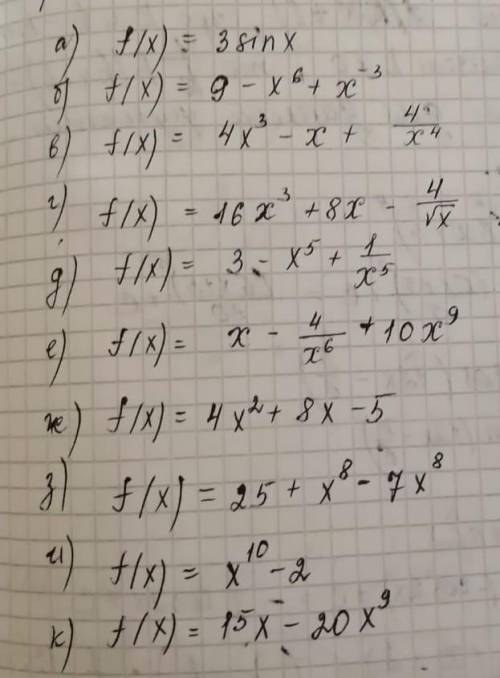 а) f(x) = 3 sin x
б) f(x) = 9 - x⁶ + x⁻³
в) f(x) = 4x³ - x + 4/x⁴
г) f(x) = 16x³ + 8x - 4/√x
д) f(x) = 3 - x⁵ + 1/x⁵
е) f(x) = x - 4/x⁶ + 10x⁹
ж) f(x) = 4x² + 8x - 5
з) f(x) = 25 + x⁸ - 7x⁸
и) f(x) = x¹⁰ - 2
к) f(x) = 15x - 20x⁹